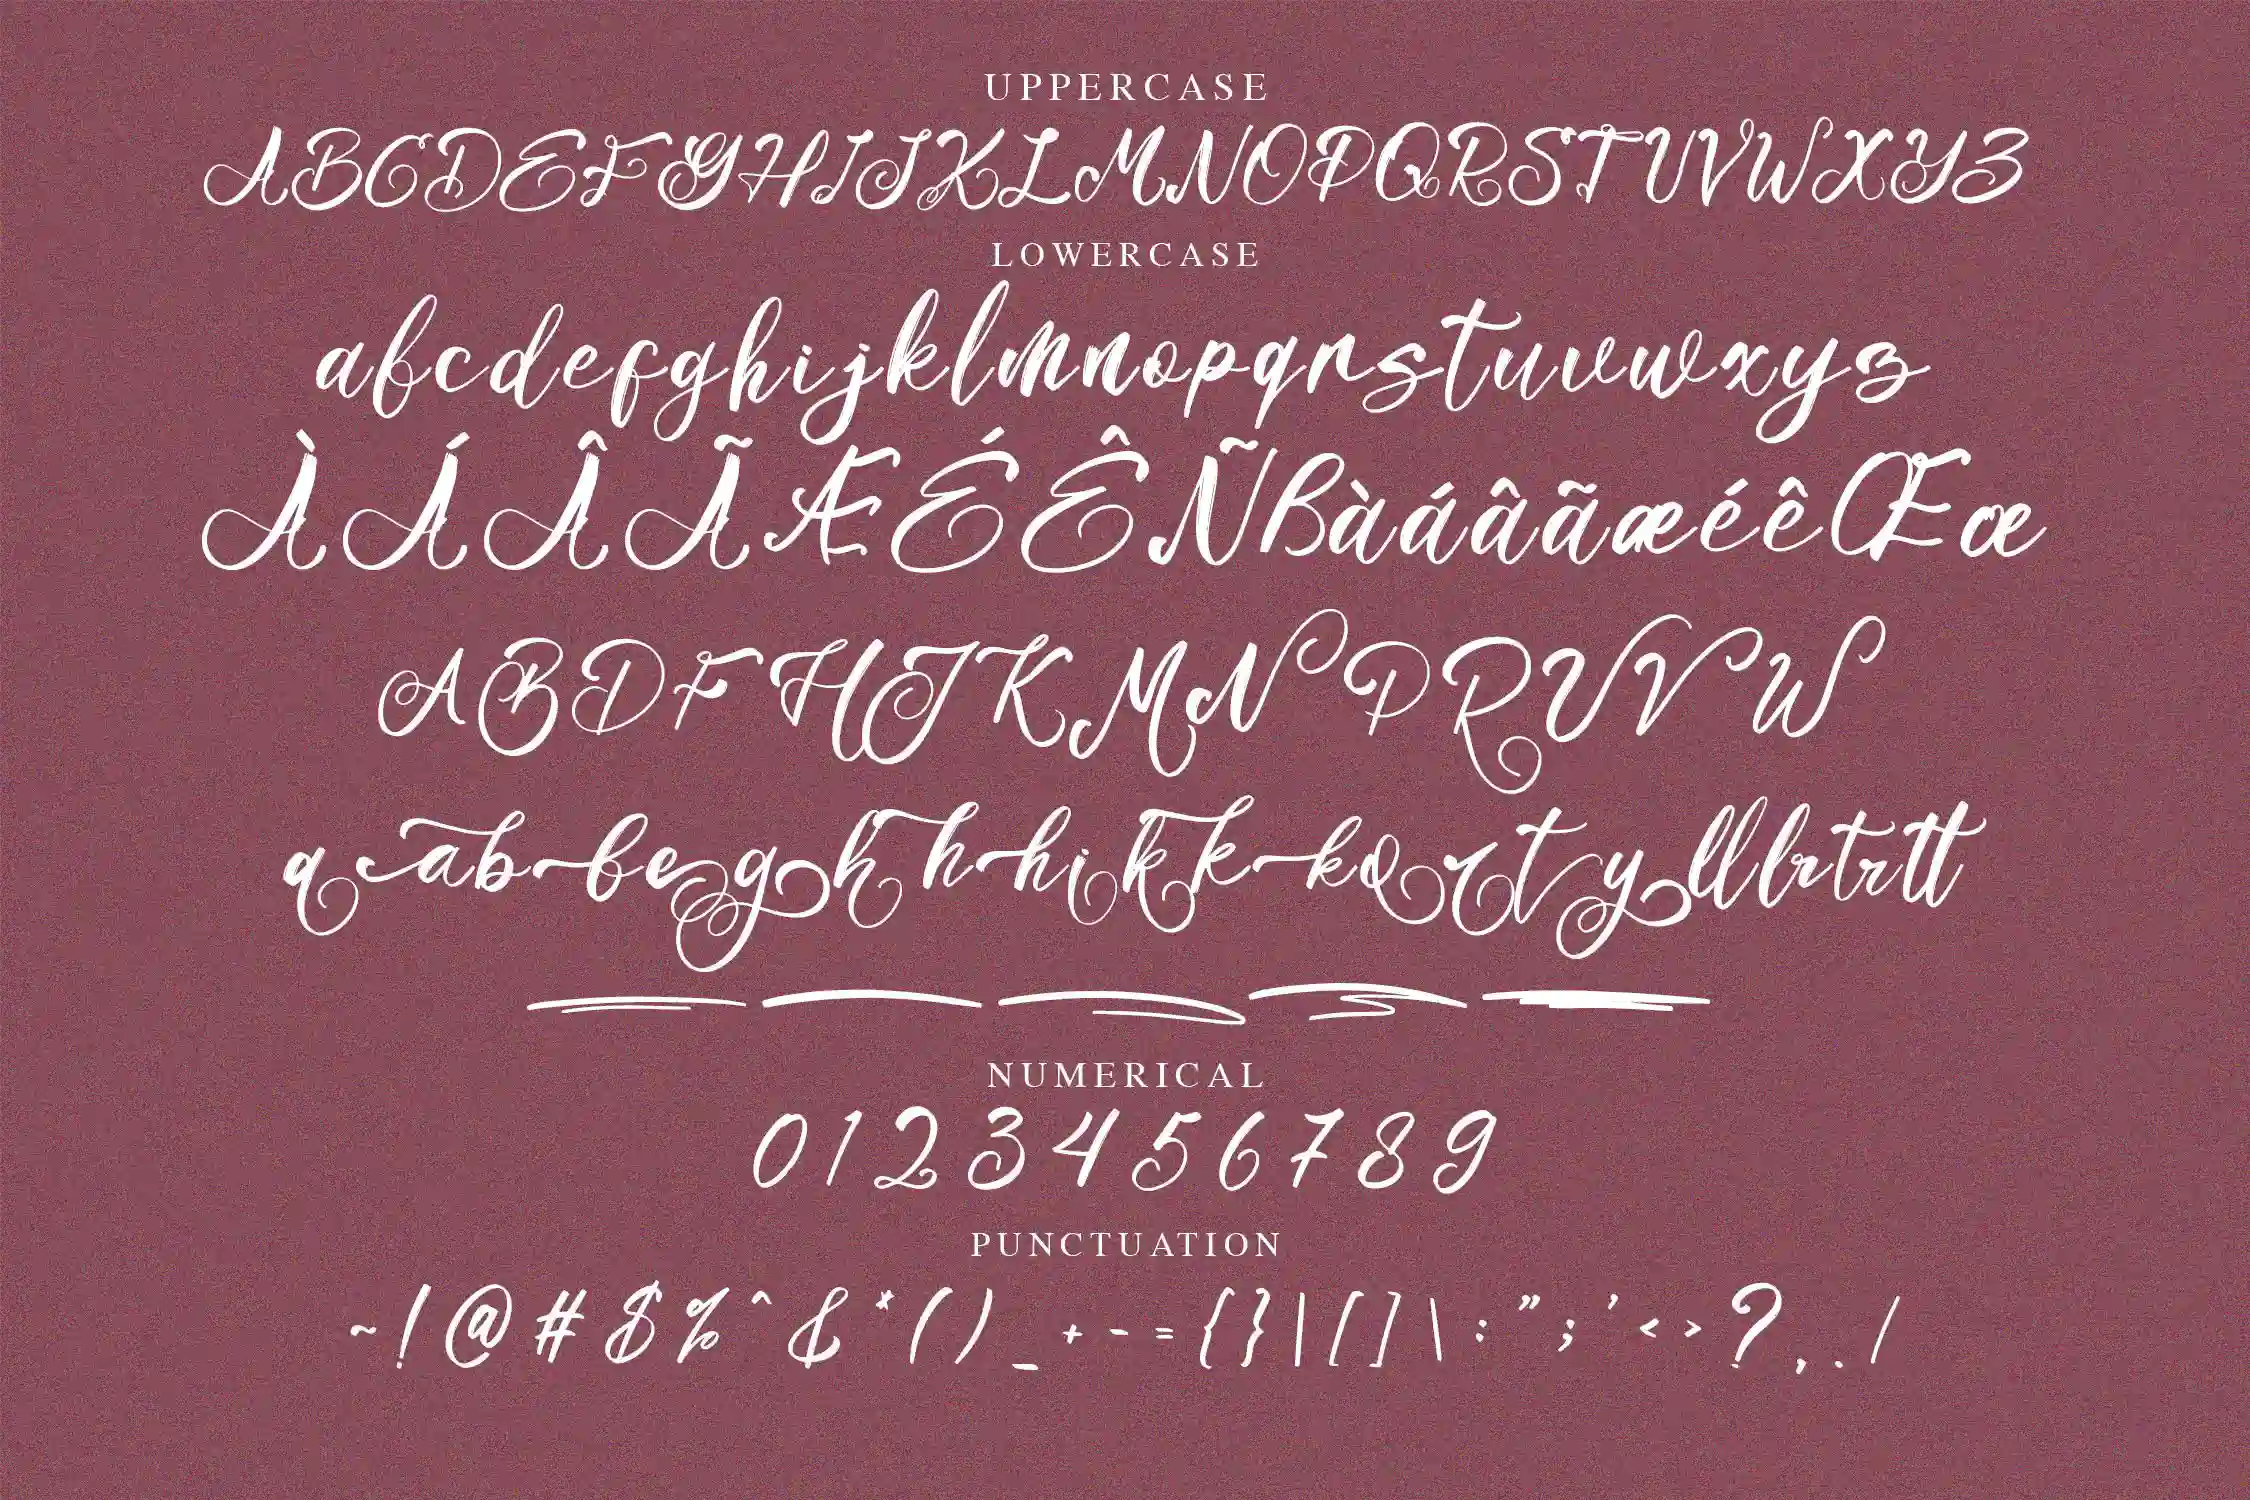 UPPERCASE
ABCDEFGHIJKLMNOPQRSTUVWXYZ
LOWERCASE
abcdefghijklmnopqrstuvwxyz
ÀÁÂÃÆÉÊÑßàáâãæéêŒœ
ABDFHJKMNPRUVW
aabbeghhhikkkortylllrtrtt
NUMERICAL
0123456789
PUNCTUATION
~!@#$%^&*()_+-={}|[]\:";'<>?,./